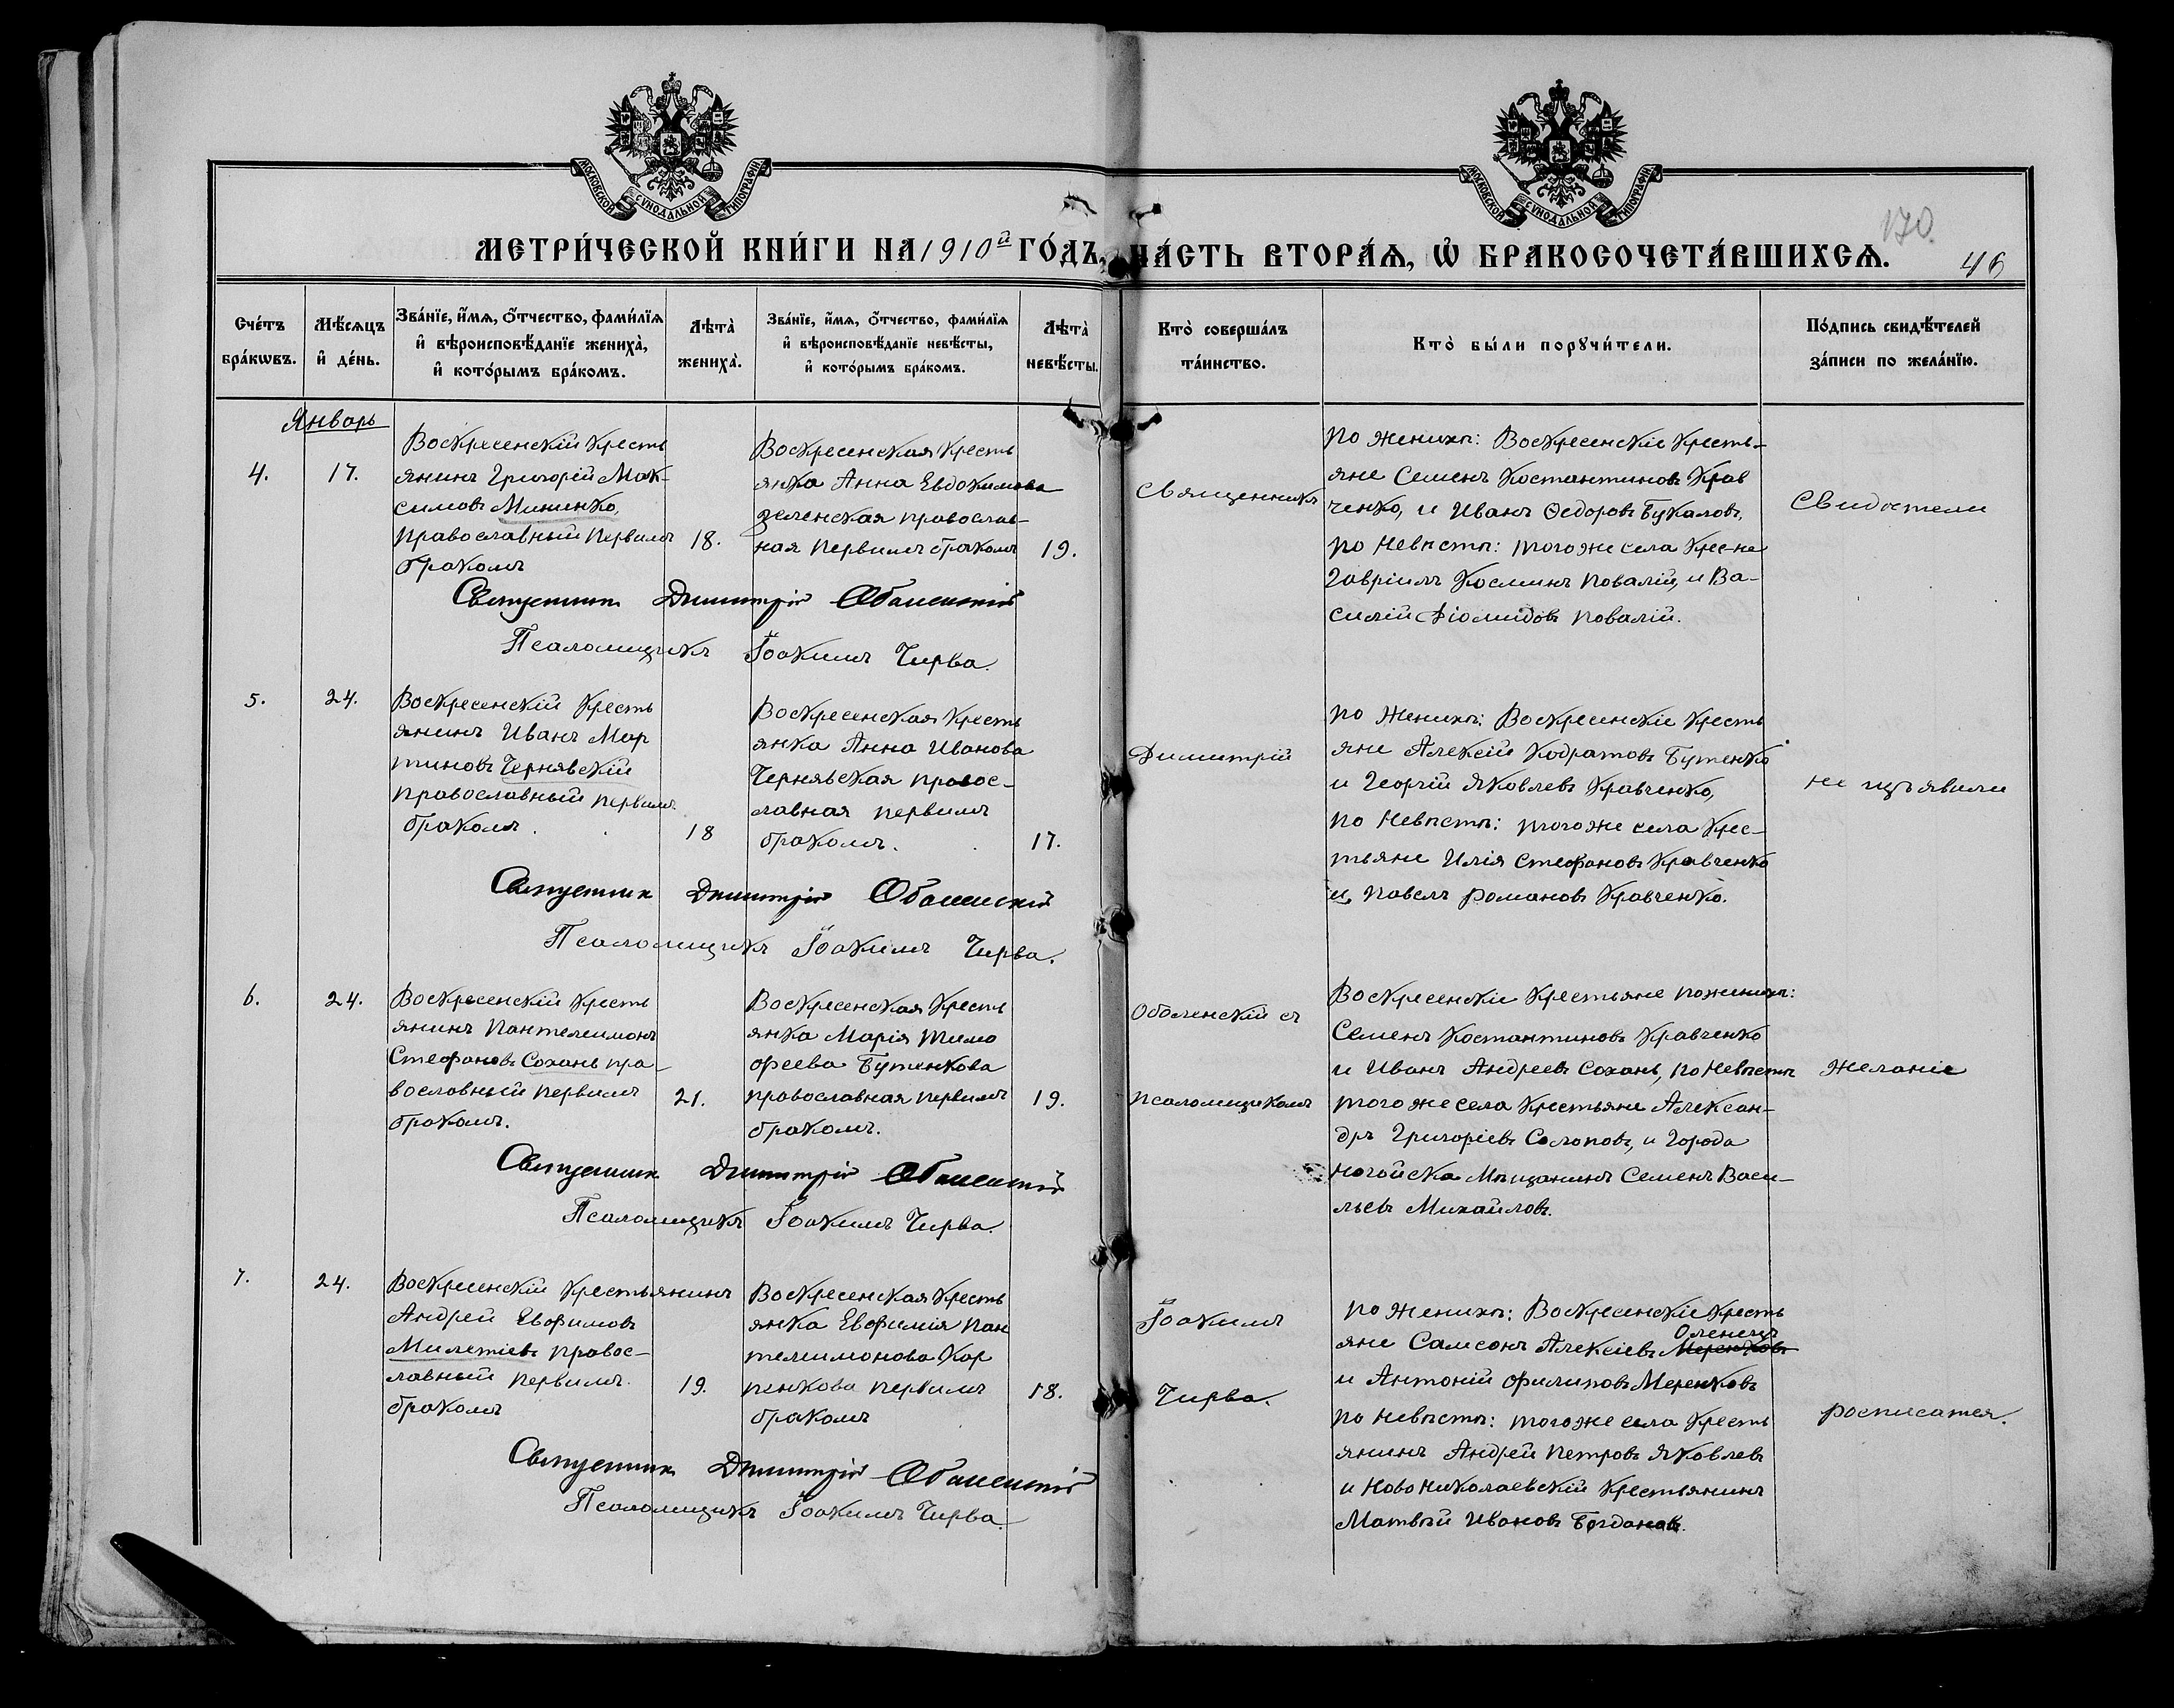 МОСКОВСКОЙ СУНОДАЛЬНОЙ ТИПОГРАФІИ
МОСКОВСКОЙ СУНОДАЛЬНОЙ ТИПОГРАФІИ
МЕТРИ́ЧЕСКОЙ КНИ́ГИ НА 1910й ГО́ДЪ, ЧА́СТЬ ВТОРА́Ѧ, Ѽ БРАКОСОЧЕТА́ВШИХСѦ.
170
46
Сче́тъ бра́кѡвъ.
Мѣ́сѧцъ и҆ де́нь.
Зва́нїе, и҆́мѧ, ѻ҆́тчество, фами́лїѧ и҆ вѣроисповѣ́данїе жениха̀, и҆ кото́рымъ бра́комъ.
Лѣта̀ жениха̀.
Зва́нїе, и҆́мѧ, ѻ҆́тчество, фами́лїѧ и҆ вѣроисповѣ́данїе невѣ́сты, и҆ кото́рымъ бра́комъ.
Лѣта̀ невѣ́сты.
Кто̀ соверша́лъ та́инство.
Кто̀ бы́ли порꙋчи́тели.
По́дпись свидѣ́телей за́писи по жела́нїю.
Январь
4.
17.
Воскресенскій кресть
янинъ Григорій Мак-
симовъ Миненко,
православный первымъ
бракомъ
18.
Воскресенская кресть
янка Анна Евдокимова
зеленская православ-
ная первымъ бракомъ
19.
Священникъ
по женихѣ: Воскресенскіе кресть-
яне Семенъ Костантиновъ Крав
ченко, и Иванъ Ѳедоровъ Букаловъ,
по невѣстѣ: того же села крес-не
Гавріилъ Косминъ Повалій, и Ва-
силій Діомидовъ Повалій.
Свидѣтели
Священникъ Димитрій Оболенскій
Псаломщикъ Іоакимъ Чирва.
5.
24.
Воскресенскій кресть
янинъ Иванъ Мар
тиновъ Чернявскій
православный первымъ
бракомъ.
18
Воскресенская кресть
янка Анна Иванова
Чернявская правос-
лавная первымъ
бракомъ.
17.
Димитрій
по женихѣ: Воскресенскіе кресть
яне Алексѣй Кодратовъ Бутенко
и Георгій Яковлевъ Кравченко,
по невѣстѣ: того же села крес-
тьяне Илія Стефановъ Кравченко
и Павелъ Романовъ Кравченко.
не изъявили
Священникъ Димитрій Оболенскій
Псаломщикъ Іоакимъ Чирва.
6.
24.
Воскресенскій кресть
янинъ Пантелеимонъ
Стефановъ Сохань пра-
вославный первымъ
бракомъ.
21.
Воскресенская кресть
янка Марія Тимо
феева Бутенкова
православная первымъ
бракомъ.
19.
Оболенскій съ
псаломщикомъ
Воскресенскіе крестьяне по женихѣ:
Семенъ Костантиновъ Кравченко
и Иванъ Андреевъ Сохань, по невѣстѣ
того же села крестьяне Алексан-
дръ Григоріевъ Солоповъ, и города
Ногайска Мѣщанинъ Семенъ Васи-
льевъ Михайловъ.
желаніе
Священникъ Димитрій Оболенскій
Псаломщикъ Іоакимъ Чирва.
7.
24.
Воскресенскій крестьянинъ
Андрей Евфимовъ
Милетіевъ правос-
лавный первымъ
бракомъ
19.
Воскресенская кресть
янка Евфимія Пан
телеимонова Кар
пенкова первымъ
бракомъ
18.
Іоакимъ
Чирва.
по женихѣ: Воскресенскіе кресть
яне Самсонъ Алексіевъ Меренковъ Оленецъ
и Антоній Филиповъ Меренковъ
по невѣстѣ: того же села кресть
янинъ Андрей Петровъ Яковлевъ
и Ново Николаевскій крестьянинъ
Матвѣй Ивановъ Богдановъ.
росписатся.
Священникъ Димитрій Оболенскій
Псаломщикъ Іоакимъ Чирва.